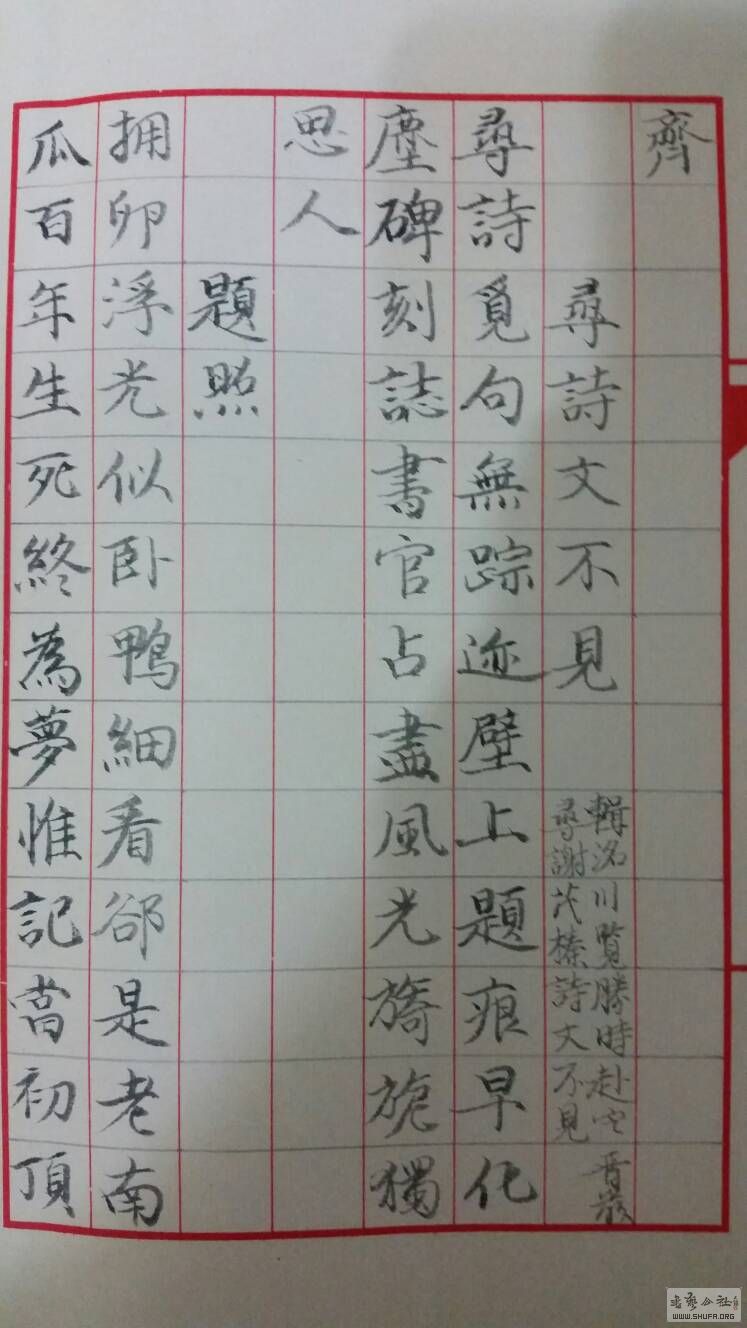 齊
尋詩文不見
輯洺川覽勝時赴
尋謝茂榛詩文不見
尋詩覓句無踪迹壁上題痕早化
塵碑刻誌書官占盡風光旖旎獨
思人
題照
拥卵浮光似卧鴨細看郤是老南
瓜百年生死終為夢惟記當初頂
WWW.SHUFA.ORG